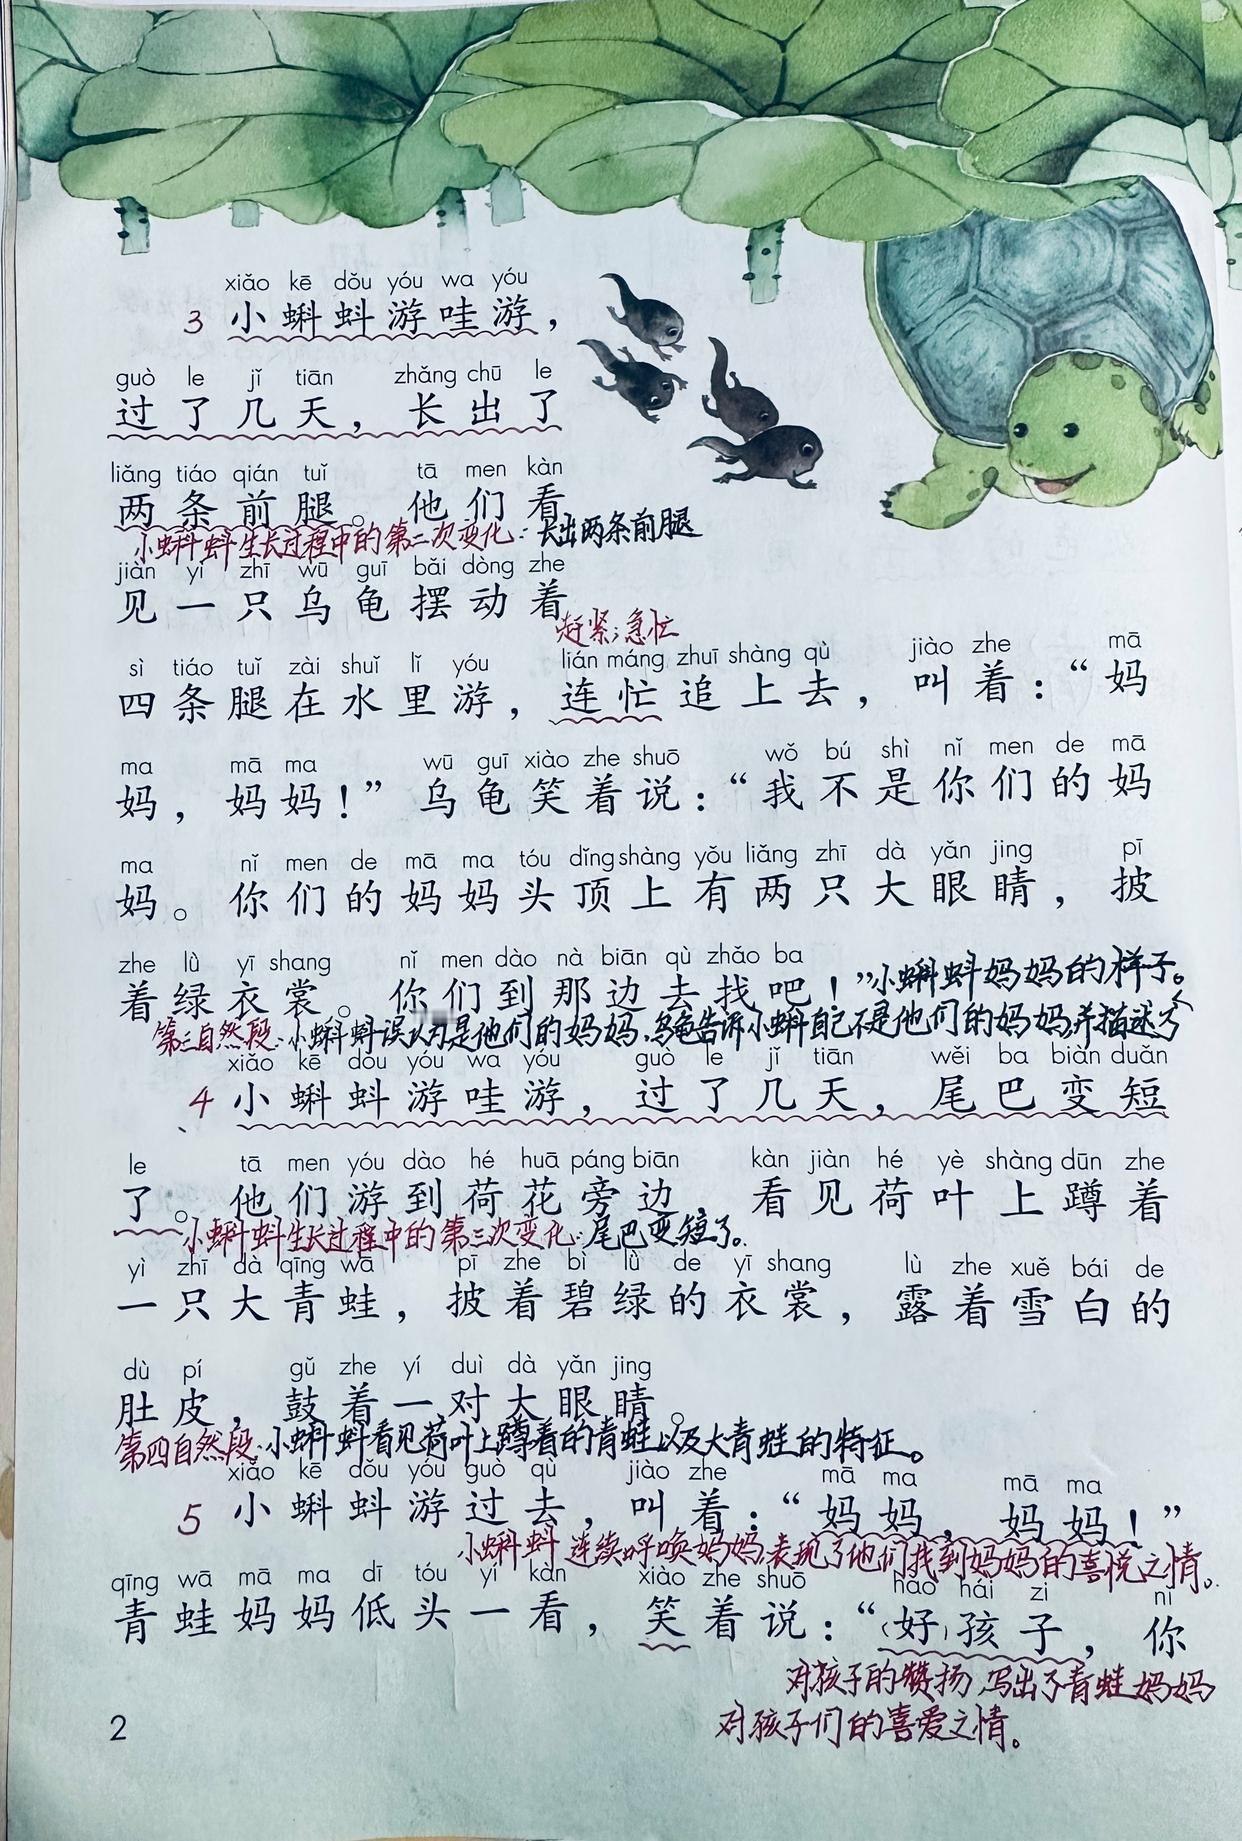 xiǎo kē dǒu yóu wa yóu
3 小蝌蚪游哇游，
guò le jǐ tiān zhǎng chū le
过了几天，长出了
liǎng tiáo qián tuǐ tā men kàn
两条前腿。他们看
小蝌蚪生长过程中的第二次变化：长出两条前腿
jiàn yì zhī wū guī bǎi dòng zhe
见一只乌龟摆动着
赶紧；急忙
sì tiáo tuǐ zài shuǐ lǐ yóu lián máng zhuī shàng qù jiào zhe mā
四条腿在水里游，连忙追上去，叫着：“妈
ma mā ma wū guī xiào zhe shuō wǒ bú shì nǐ men de mā
妈，妈妈！”乌龟笑着说：“我不是你们的妈
ma nǐ men de mā ma tóu dǐng shàng yǒu liǎng zhī dà yǎn jing pī
妈。你们的妈妈头顶上有两只大眼睛，披
zhe lǜ yī shang nǐ men dào nà biān qù zhǎo ba
着绿衣裳。你们到那边去找吧！”
小蝌蚪妈妈的样子。
第三自然段：小蝌蚪误认为是他们的妈妈，乌龟告诉小蝌自己不是他们的妈妈，并描述了
xiǎo kē dǒu yóu wa yóu guò le jǐ tiān wěi ba biàn duǎn
4 小蝌蚪游哇游，过了几天，尾巴变短
le tā men yóu dào hé huā páng biān kàn jiàn hé yè shàng dūn zhe
了。他们游到荷花旁边，看见荷叶上蹲着
小蝌蚪生长过程中的第三次变化：尾巴变短了。
yì zhī dà qīng wā pī zhe bì lǜ de yī shang lù zhe xuě bái de
一只大青蛙，披着碧绿的衣裳，露着雪白的
dù pí gǔ zhe yí duì dà yǎn jing
肚皮，鼓着一对大眼睛。
第四自然段：小蝌蚪看见荷叶上蹲着的青蛙以及大青蛙的特征。
xiǎo kē dǒu yóu guò qù jiào zhe mā ma mā ma
5 小蝌蚪游过去，叫着：“妈妈，妈妈！”
小蝌蚪连续呼唤妈妈，表现了他们找到妈妈的喜悦之情。
qīng wā mā ma dī tóu yí kàn xiào zhe shuō hǎo hái zi nǐ
青蛙妈妈低头一看，笑着说：“好孩子，你
对孩子的赞扬，写出了青蛙妈妈
对孩子们的喜爱之情。
2